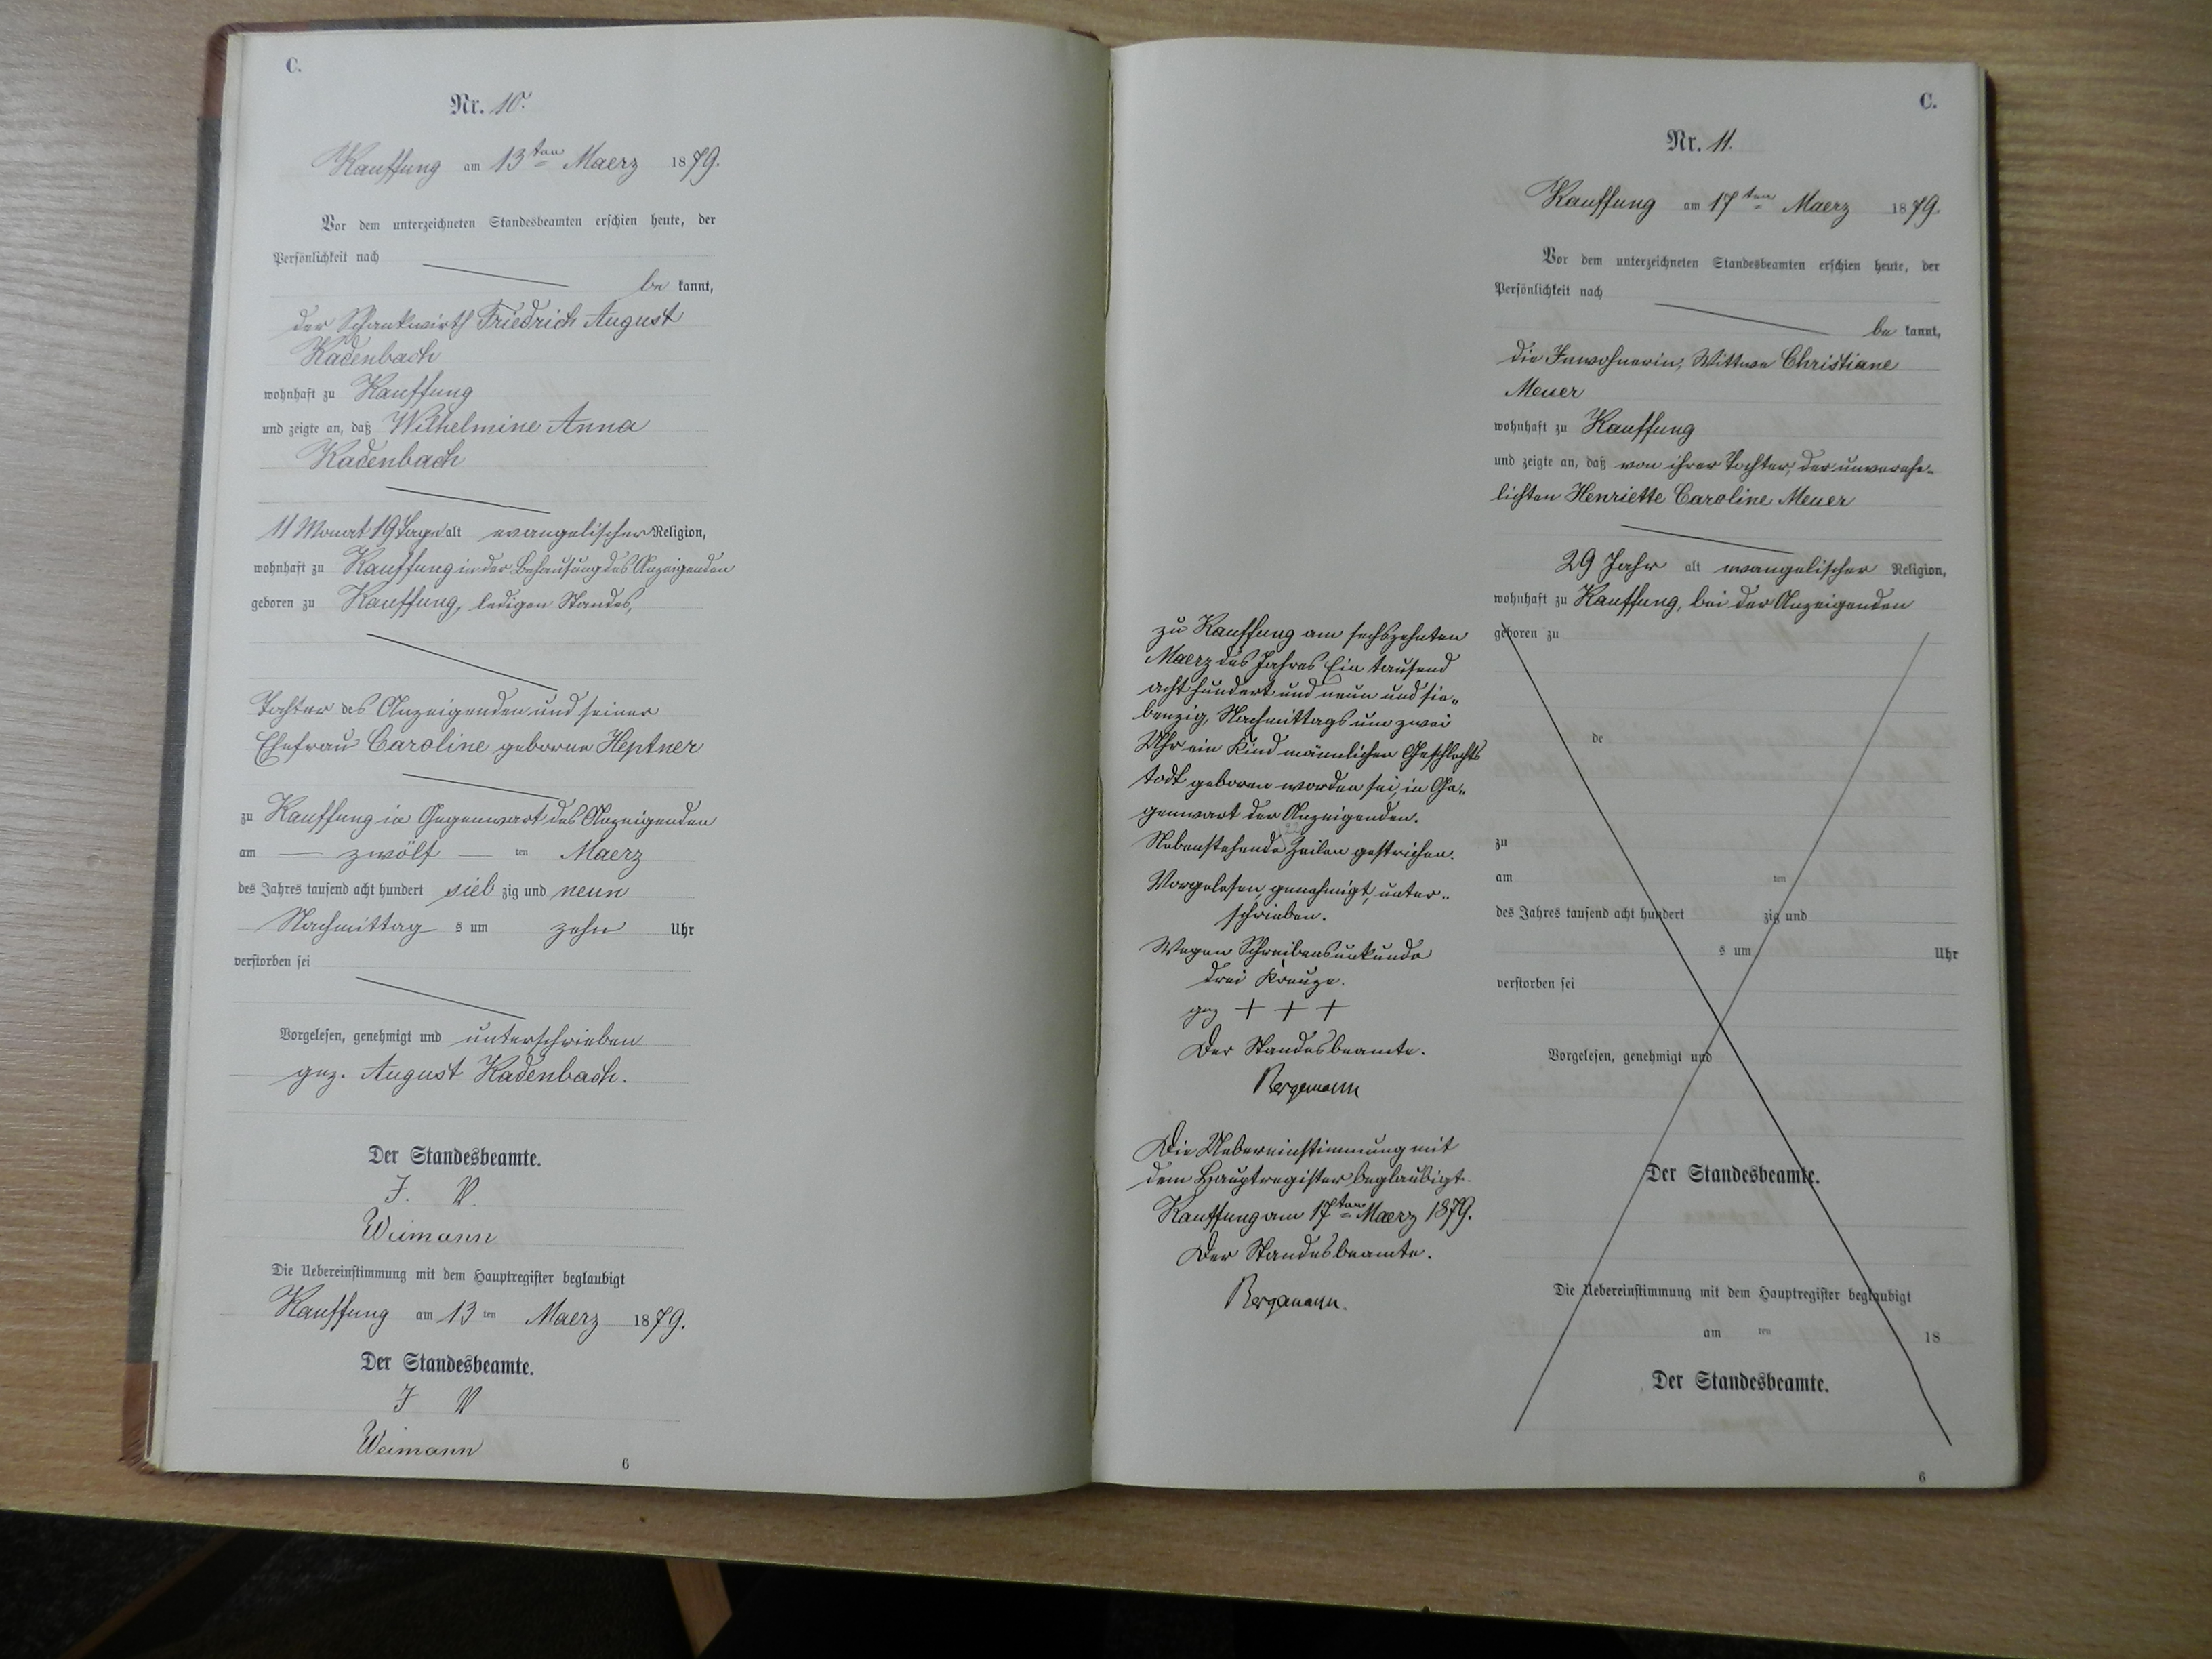 C.
Nr. 10.
Kauffung am 13ten Maerz 1879.
Vor dem unterzeichneten Standesbeamten erschien heute, der
Persönlichkeit nach
be kannt,
der Schankwirth Friedrich August
Kadenbach
wohnhaft zu Kauffung
und zeigte an, daß Wilhelmine Anna
Kadenbach
11 Monat 19 Tage alt evangelischer Religion,
wohnhaft zu Kauffung in der Behausung des Anzeigenden
geboren zu Kauffung, ledigen Standes,
Tochter des Anzeigenden und seiner
Ehefrau Caroline geborne Heptner
zu Kauffung in Gegenwart des Anzeigenden
am — zwölf — ten Maerz
des Jahres tausend acht hundert sieb zig und neun
Nachmittag s um zehn Uhr
verstorben sei
Vorgelesen, genehmigt und unterschrieben
gez. August Kadenbach.
Der Standesbeamte.
I. V.
Weimann
Die Uebereinstimmung mit dem Hauptregister beglaubigt
Kauffung am 13 ten Maerz 1879.
Der Standesbeamte.
I V
Weimann
6
C.
Nr. 11.
Kauffung am 17ten Maerz 1879.
Vor dem unterzeichneten Standesbeamten erschien heute, der
Persönlichkeit nach
be kannt,
die Inwohnerin, Wittwe Christiane
Meuer
wohnhaft zu Kauffung
und zeigte an, daß von ihrer Tochter, der unverehe-
lichten Henriette Caroline Meuer
29 Jahr alt evangelischer Religion,
wohnhaft zu Kauffung, bei der Anzeigenden
geboren zu
de
zu
am ten
des Jahres tausend acht hundert zig und
s um Uhr
verstorben sei
Vorgelesen, genehmigt und
Der Standesbeamte.
Die Uebereinstimmung mit dem Hauptregister beglaubigt
am ten 18
Der Standesbeamte.
6
zu Kauffung am sechszehnten
Maerz des Jahres Ein tausend
acht hundert und neun und sie-
benzig, Nachmittags um zwei
Uhr ein Kind männlichen Geschlechts
todt geboren worden sei, in Ge-
genwart der Anzeigenden.
Nebenstehende 22 Zeilen gestrichen.
Vorgelesen, genehmigt, unter-
schrieben.
Wegen Schreibensunkunde
drei Kreuze.
gez + + +
Der Standesbeamte.
Bergmann
Die Uebereinstimmung mit
dem Hauptregister beglaubigt.
Kauffung am 17ten Maerz 1879.
Der Standesbeamte.
Bergmann.